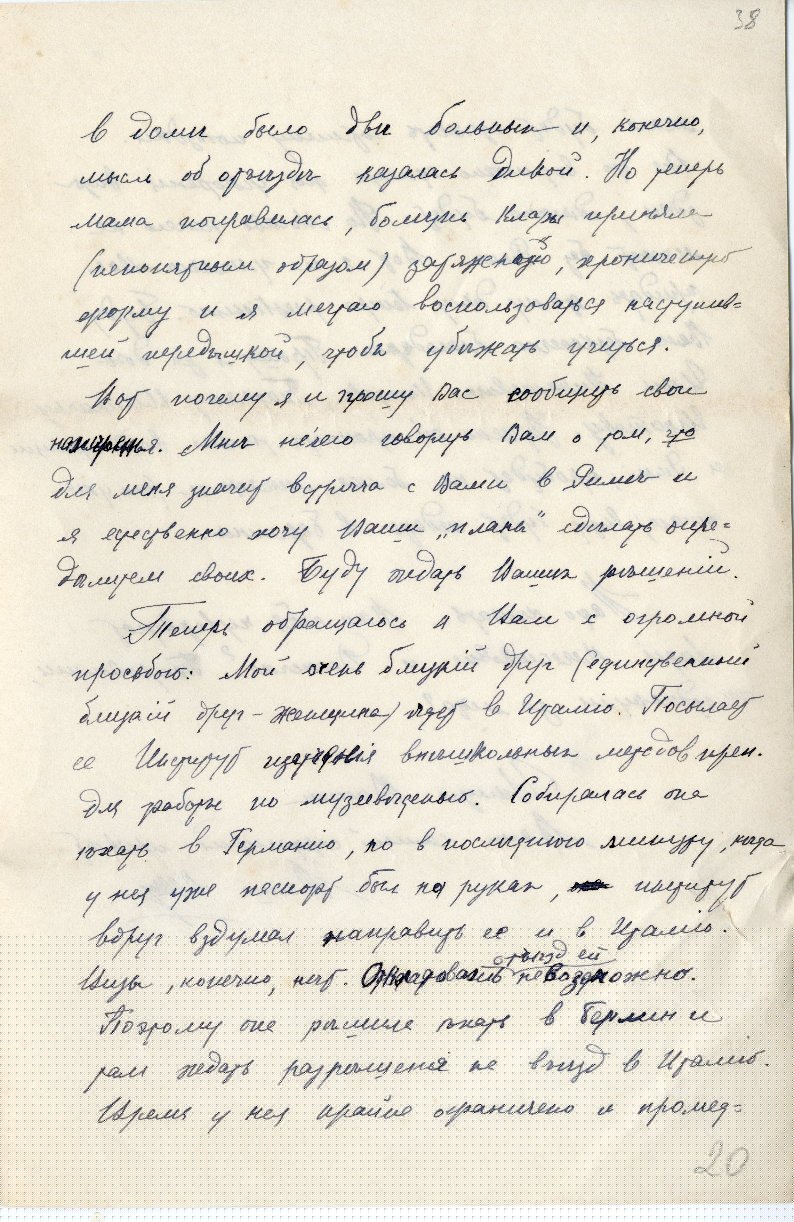 38
в домѣ было двѣ больных и, конечно,
мысль об отъѣздѣ казалась дикой. Но теперь
мама поправилась, болѣзнь Клары приняла
(непонятным образом) затяжную, хроническую
форму и я мечтаю воспользоваться наступив-
шей передышкой, чтобы убѣжать учиться.
Вот почему я и прошу Вас сообщить свои
намѣренья. Мнѣ нечего говорить Вам о том, что
для меня значит встрѣча с Вами в Римѣ и
я естественно хочу Ваши „планы“ сдѣлать опре=
дѣлителем своих. Буду ждать Ваших рѣшеній.
Теперь обращаюсь к Вам с огромной
просьбою: Мой очень близкій друг (единственный
близкій друг – женщина) ѣдет в Италію. Посылает
ее Институт внѣшкольных методов преп.
для работы по музеевѣденью. Собиралась она
ѣхать в Германію, но в послѣднюю минуту, когда
у нея уже паспорт был на руках, институт
вдруг вздумал направить ее и в Италію.
Визы, конечно, нѣт. Откладовать отъѣзд ей невозможно.
Поэтому она рѣшила ѣхать в Берлин и
там ждать разрѣшенія на въѣзд в Италію.
Время у нея крайне ограничено и промед=
20